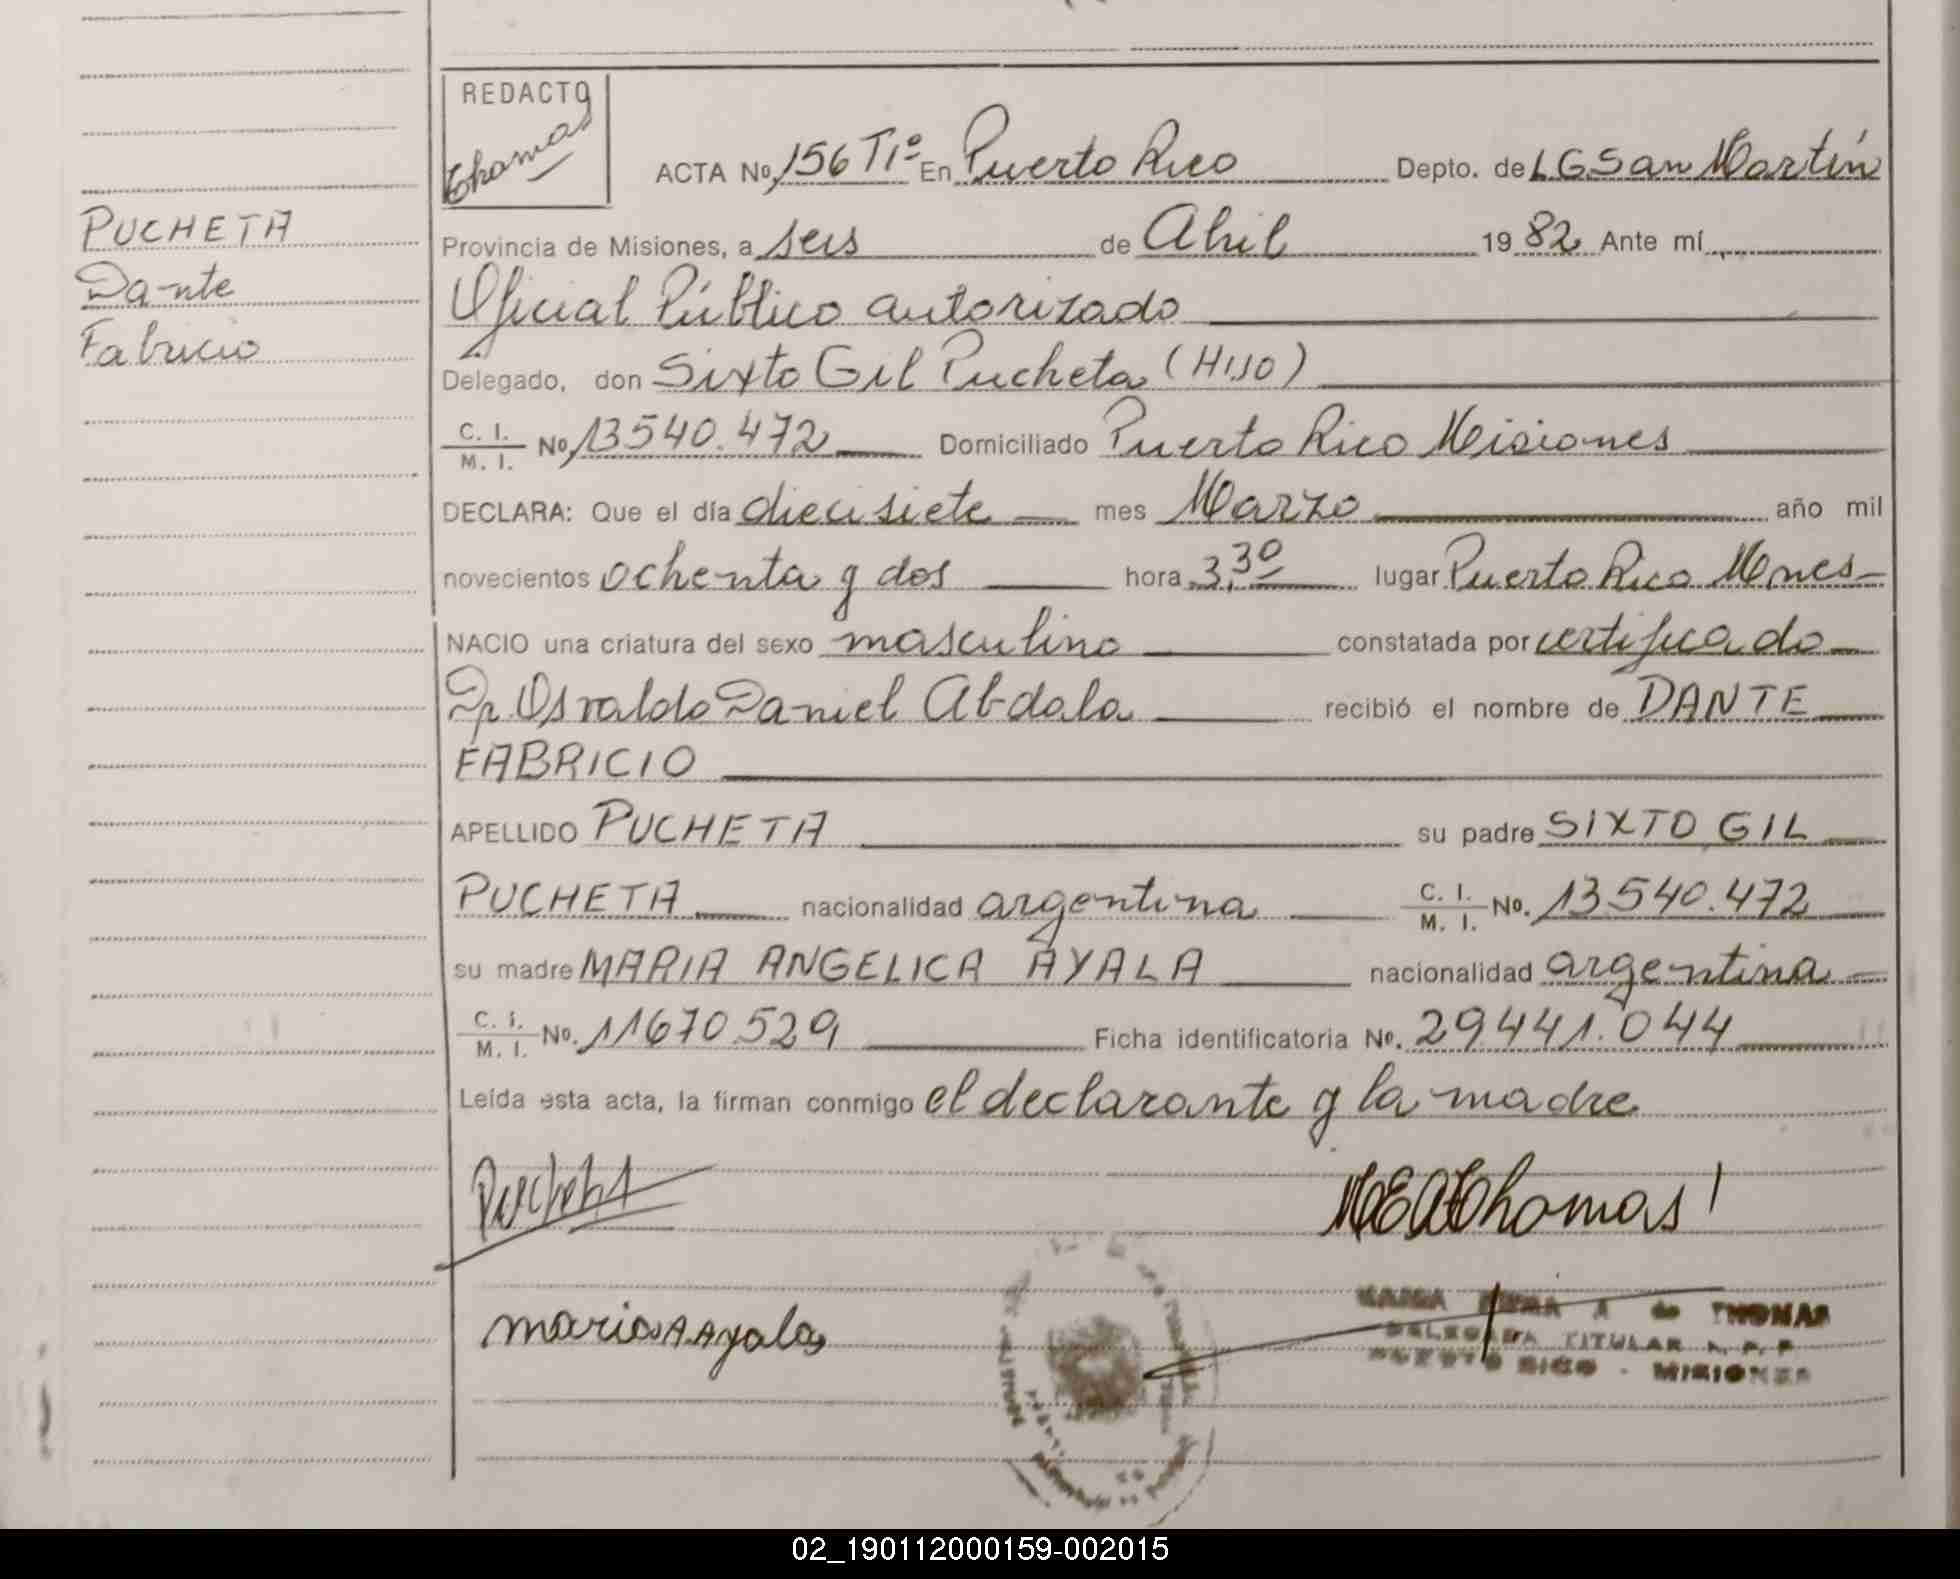 REDACTO
Thomas
ACTA No. 156 T1º En Puerto Rico Depto. de L G San Martín
PUCHETA
Dante
Fabricio
Provincia de Misiones, a seis de Abril 1982 Ante mí
Oficial Público autorizado
Delegado, don Sixto Gil Pucheta (HIJO)
C. I. / M. I. No. 13540.472 Domiciliado Puerto Rico Misiones
DECLARA: Que el día diecisiete mes Marzo año mil
novecientos ochenta y dos hora 3,30 lugar Puerto Rico Mnes
NACIO una criatura del sexo masculino constatada por certificado
Dr. Osvaldo Daniel Abdala recibió el nombre de DANTE
FABRICIO
APELLIDO PUCHETA su padre SIXTO GIL
PUCHETA nacionalidad argentina C. I. / M. I. No. 13.540.472
su madre MARIA ANGELICA AYALA nacionalidad argentina
C. I. / M. I. No. 11670.529 Ficha identificatoria No. 29.441.044
Leída esta acta, la firman conmigo el declarante y la madre
Pucheta
Thomas
maria A Ayala
MARIA A de THOMAS
DELEGADA TITULAR R. P. P.
PUERTO RICO - MISIONES
02_190112000159-002015